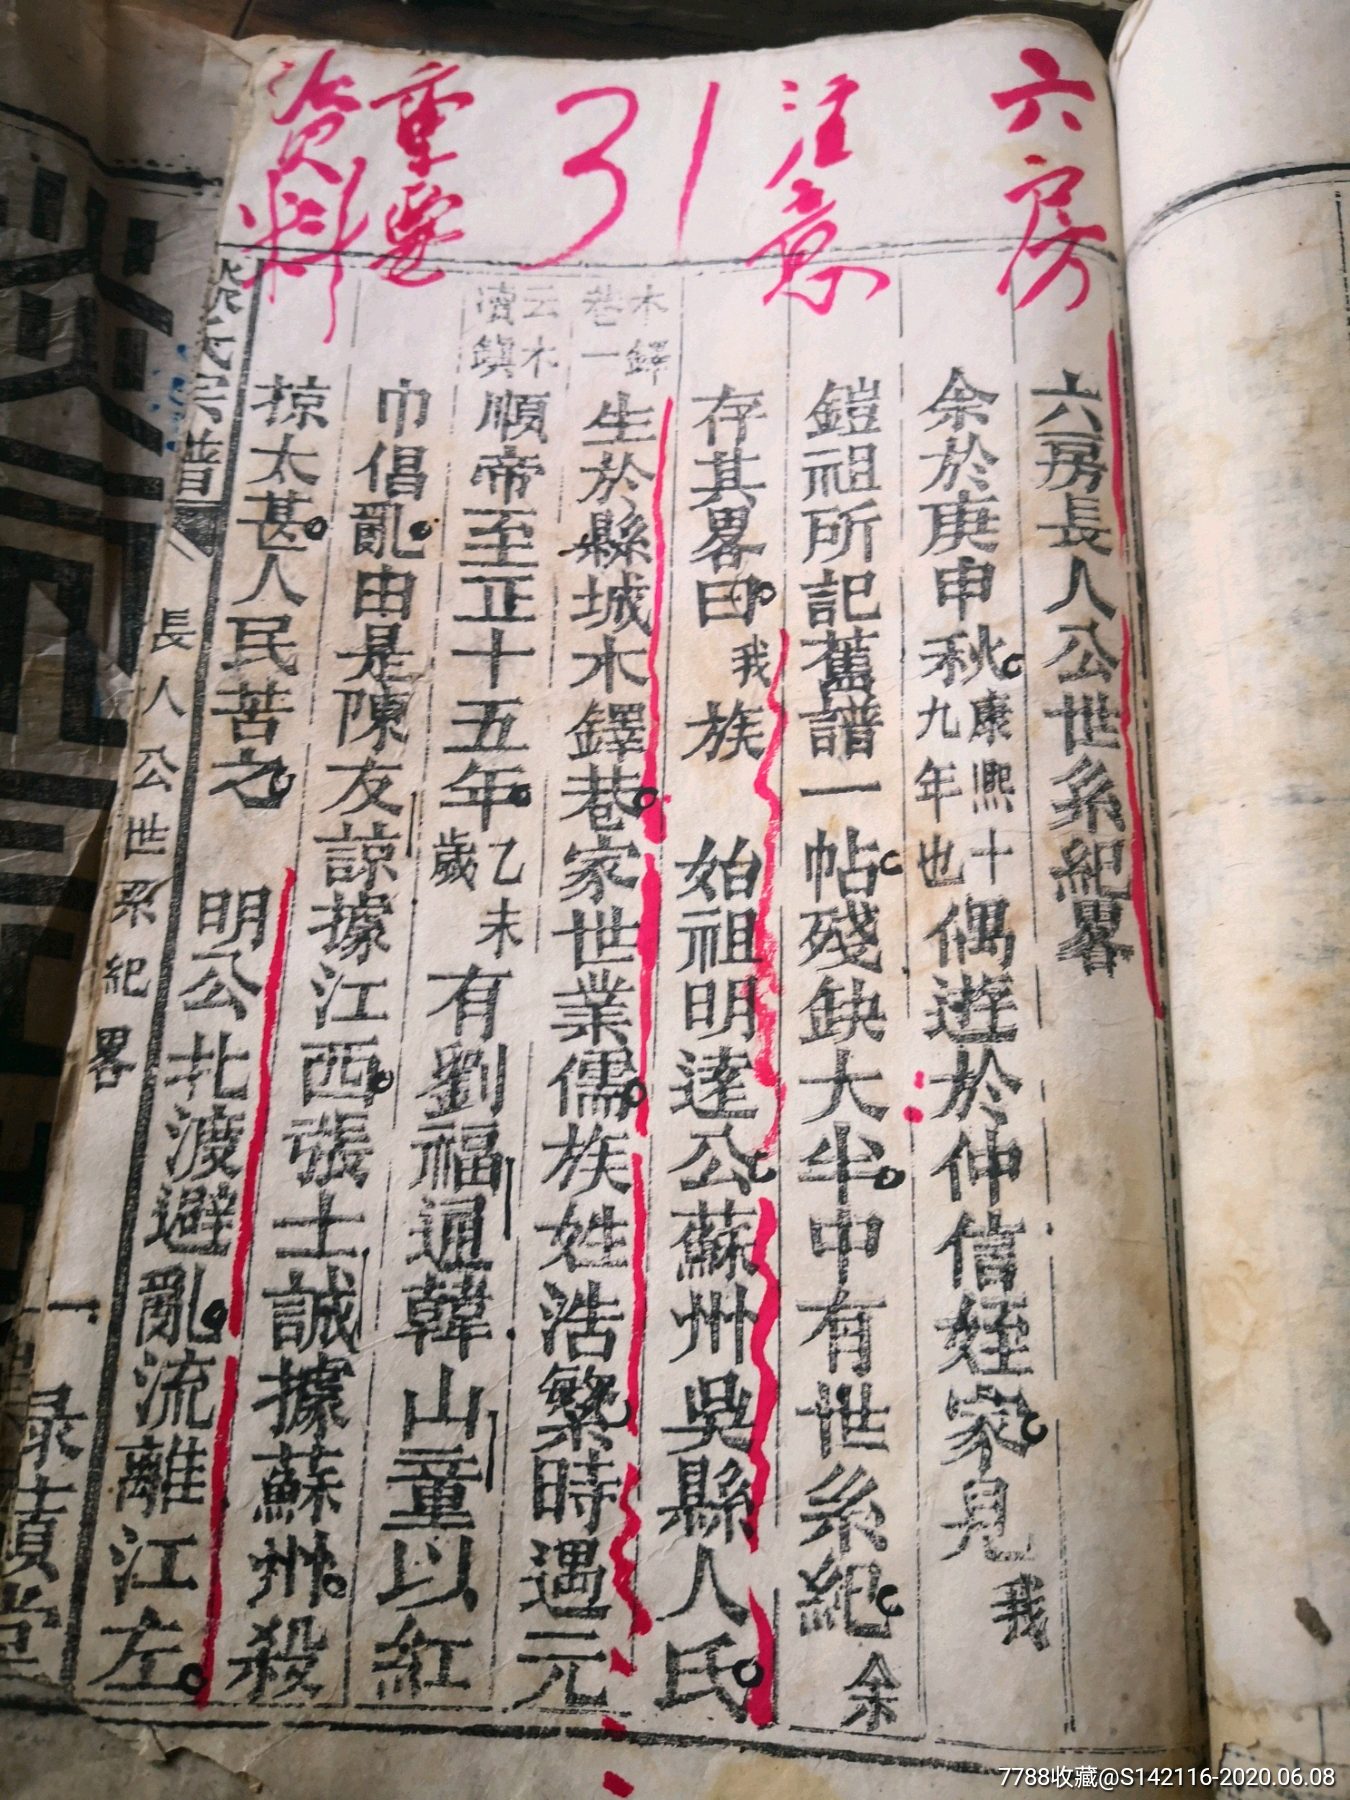 六房
注意
31
重要
資料
六房長人公世系紀畧
余於庚申秋康熙十九年也偶遊於仲信姪家見我
鎧祖所記舊譜一帖殘缺大半中有世系紀余
存其畧曰我族始祖明達公蘇州吳縣人氏
木鐸巷一
生於縣城木鐸巷家世業儒族姓浩繁時遇元
云木瀆鎮
順帝至正十五年乙未歲有劉福通韓山童以紅
巾倡亂由是陳友諒據江西張士誠據蘇州殺
掠太甚人民苦之
明公北渡避亂流離江左
氏宗譜
長人公世系紀畧
一
7788收藏@S142116-2020.06.08